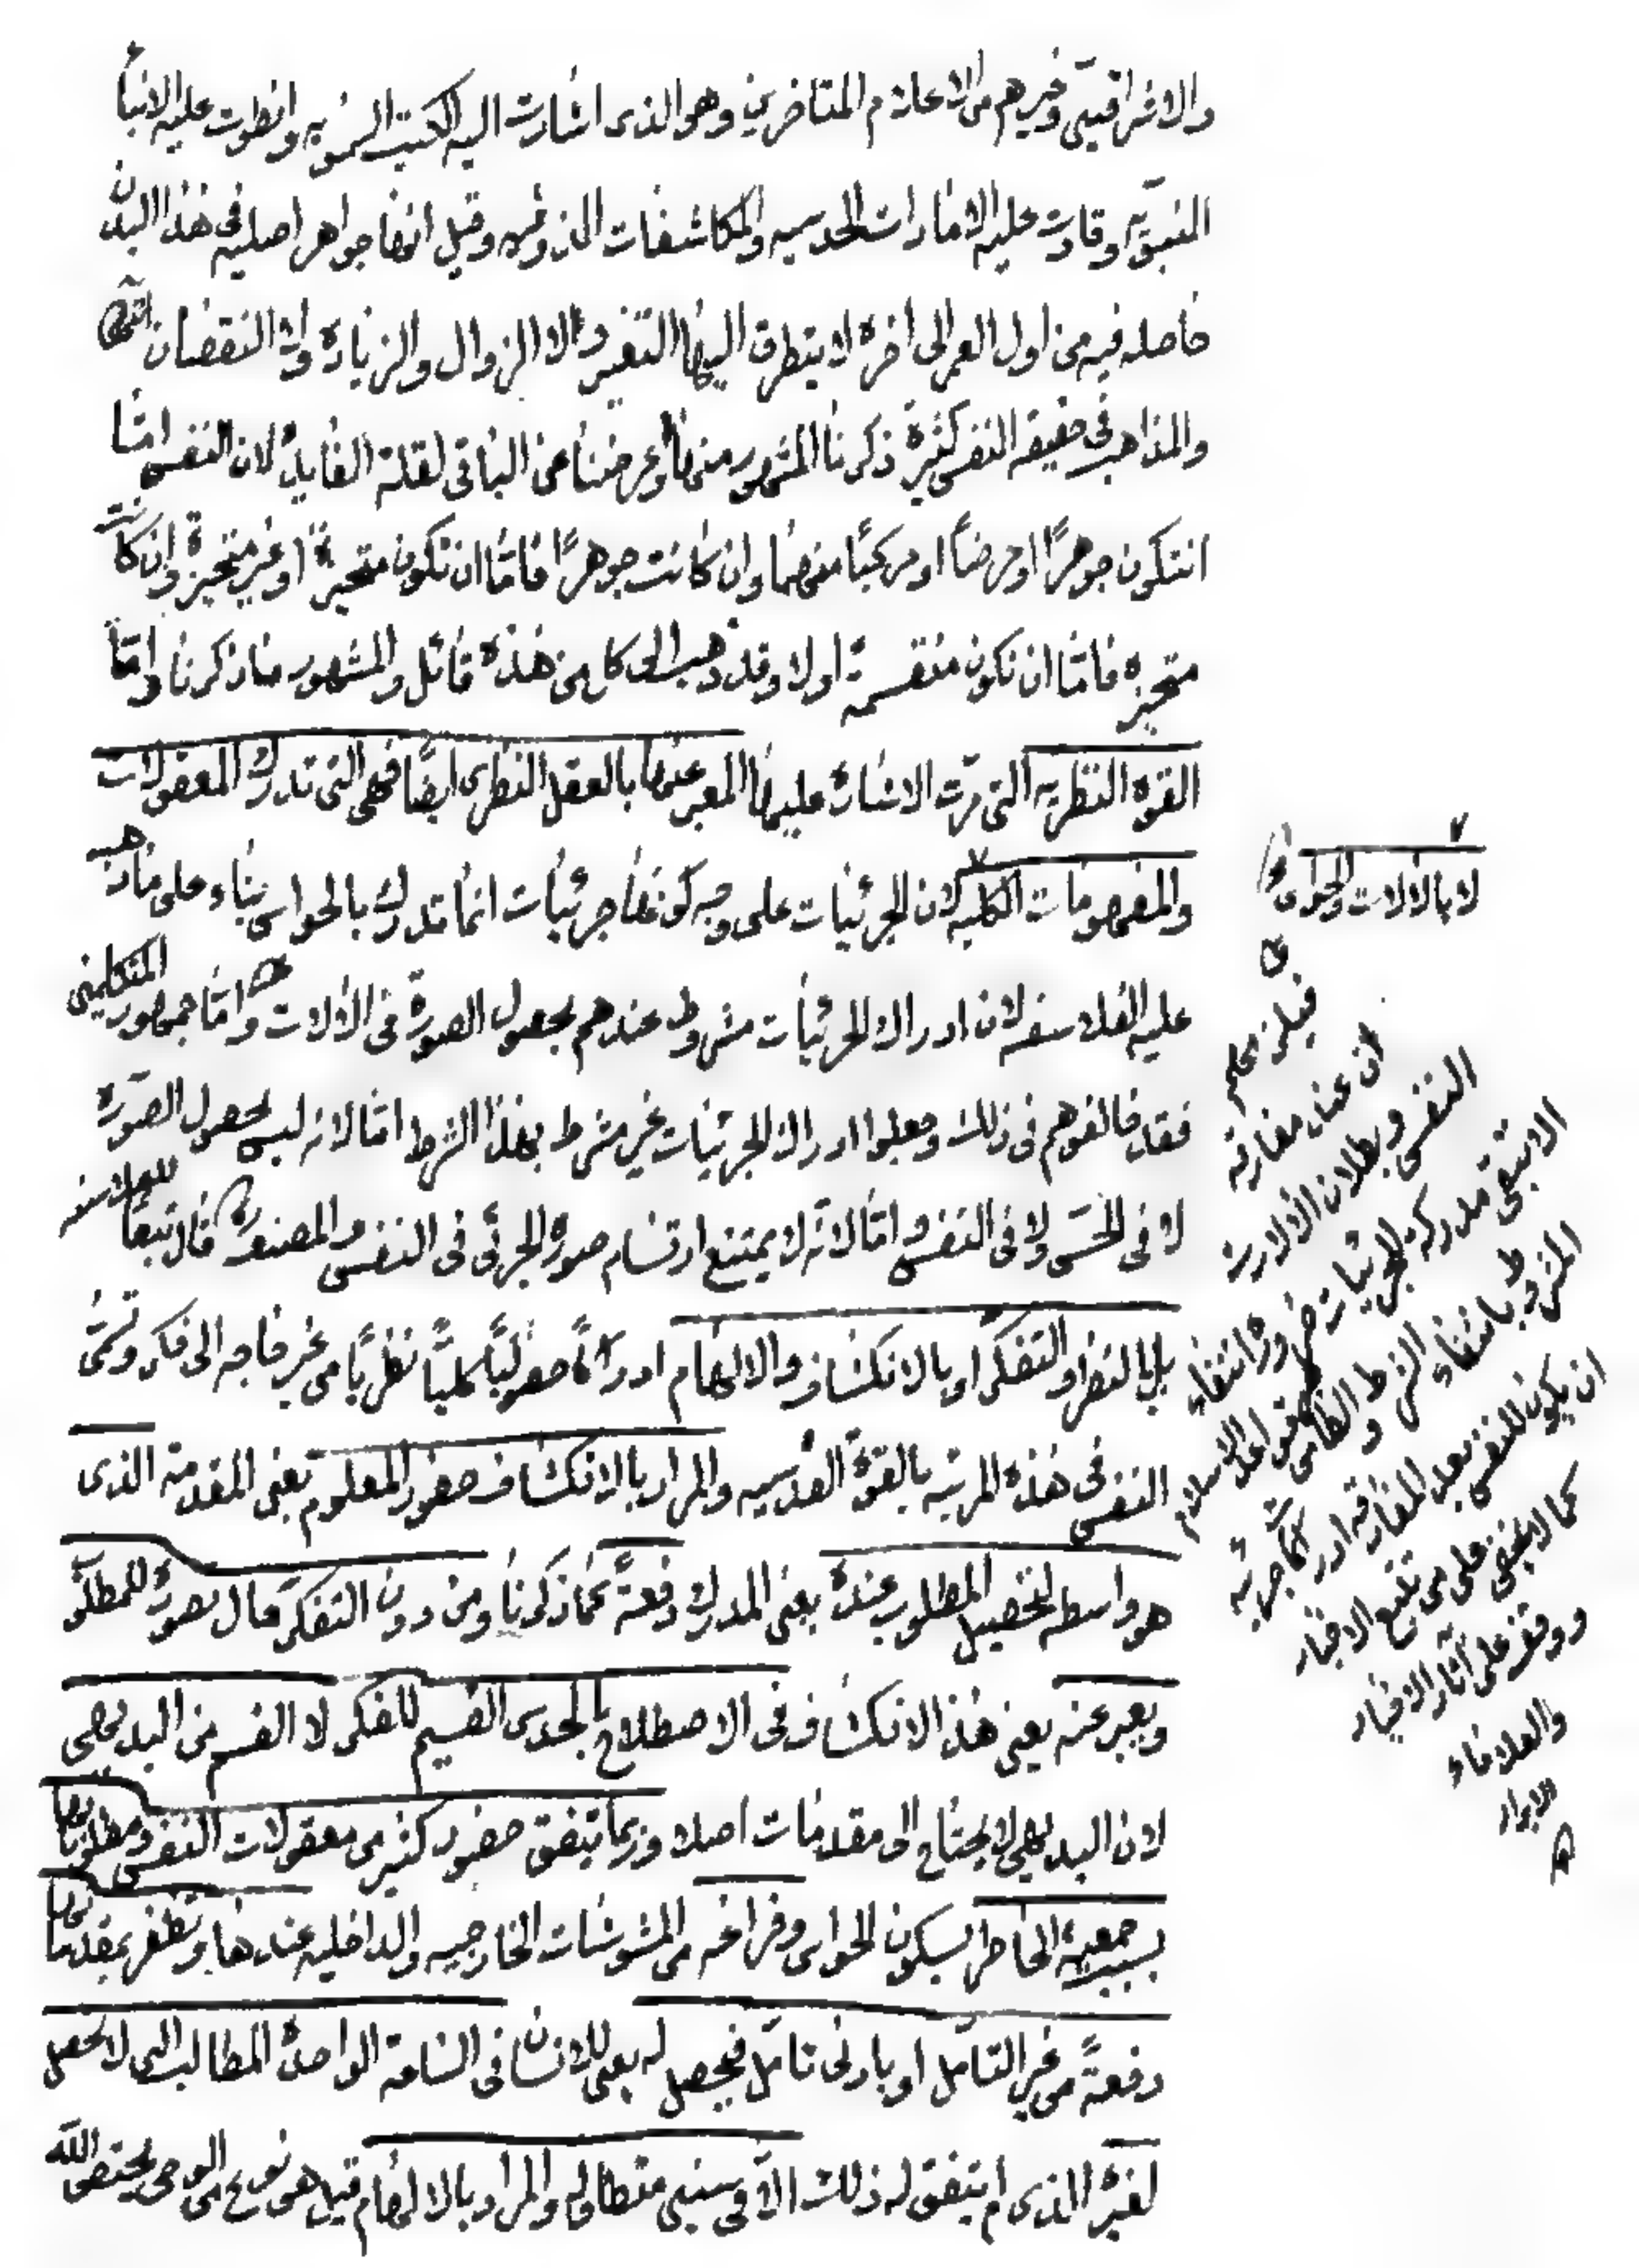 والاشراقيين وغيرهم من الاعلام المتاخرين وهو الذى اشارت اليه الكتب السمويه وانطوت عليه الانبأ
النبويّه وقادت عليه الامارات الحدسيه والمكاشفات الذوقيه وقيل انها جواهر اصليه فى هذا البدن
حاصله فيه من اول العمر الى اخره لا يتطرق اليها التغير ولا الزوال والزيادة ولا النقصان انتهى
والمذاهب فى حقيقه النفس كثيرة ذكرنا المشهور منها وعرضنا عن الباقى لقلة الفايدة لان النفس امّا
ان تكون جوهرًا او عرضاً او مركبًا منهما وان كانت جوهرًا فامّا ان تكون متحيزة او غير متحيزة وان كانت
متحيزه فامّا ان تكون منقسمة اولا وقد ذهب الى كل من هذه قائل والمشهور ما ذكرنا وامّا
القوه النظريه التى مرّت الاشارة عليها المعبر عنها بالعقل النظرى ايضًا فهى التى تدرك المعقولات
والمفهومات الكليه لان الجزئيات على وجه كونها جزئيات انما تدرك بالحواس بناء على ما ذهب
عليه الفلاسفه لان ادراك الجزئيات مشروط عندهم بحصول الصورة فى الالات وامّا جمهور المتكلمين
فقد خالفوهم فى ذلك وجعلوا ادراك الجزئيات غير مشرط بهذا الشرط امّا لانه ليس بحصول الصّورة
لا فى الحسّ ولا فى النفس وامّا لانّه لا يمتنع ارتسام صورة الجزئى فى النفس والمصنف قال تبعًا للفلاسفه
بل بالنظر او التفكر او بالانكشاف والالهام ادراكًا حصوليًّا كليًّا نظريًّا من غير حاجه الى فكر وتسمّى
النفس فى هذه المرتبه بالقوّة القدسيه والمراد بالانكشاف حضور المعلوم يعنى المقدمة الذى
هو واسطه لتحصيل المطلوب عنده يعنى المدرك دفعةً كما ذكرنا ومن دون التفكر حال بصورة للمطلو
ويعبر عنه يعنى هذا الانكشاف فى الاصطلاح بالحدس القسيم للفكر لا القسم من البديهى
لان البديهى لا يحتاج الى مقدمات اصلا وربما يتفق حضور كثير من معقولات النفس ومطلوباتها
بسبب جمعيّة الخاطر بسكون الحواس وفراغه من المشوشات الخارجيه والداخليه عندها وتظفر بمقدماتها
دفعةً من غير التامّل او بادنى تامّل فيحصل له يعنى للانسان فى الساعة الواحدة المطالب التى لا تحصل
لغيره الذى لم يتفق له ذلك الّا فى سنين متطاوله والمراد بالالهام قيل هى نوع من الوحى يختص الله
لا بالالات والحواس
فيلزمهم
ان عند مفارقه
النفس وبطلان الالات
لا تبقى مدركة للجزئيات ضرورة انتفاء
المشروط بانتفاء الشرط والظاهر من قواعد الاسلام
ان يكون للنفس بعد المفارقه ادراكات جزئيه
كما لا يخفى على من تتبع الاخبار
ووقف على آثار الاخيار
والعلماء
الابرار